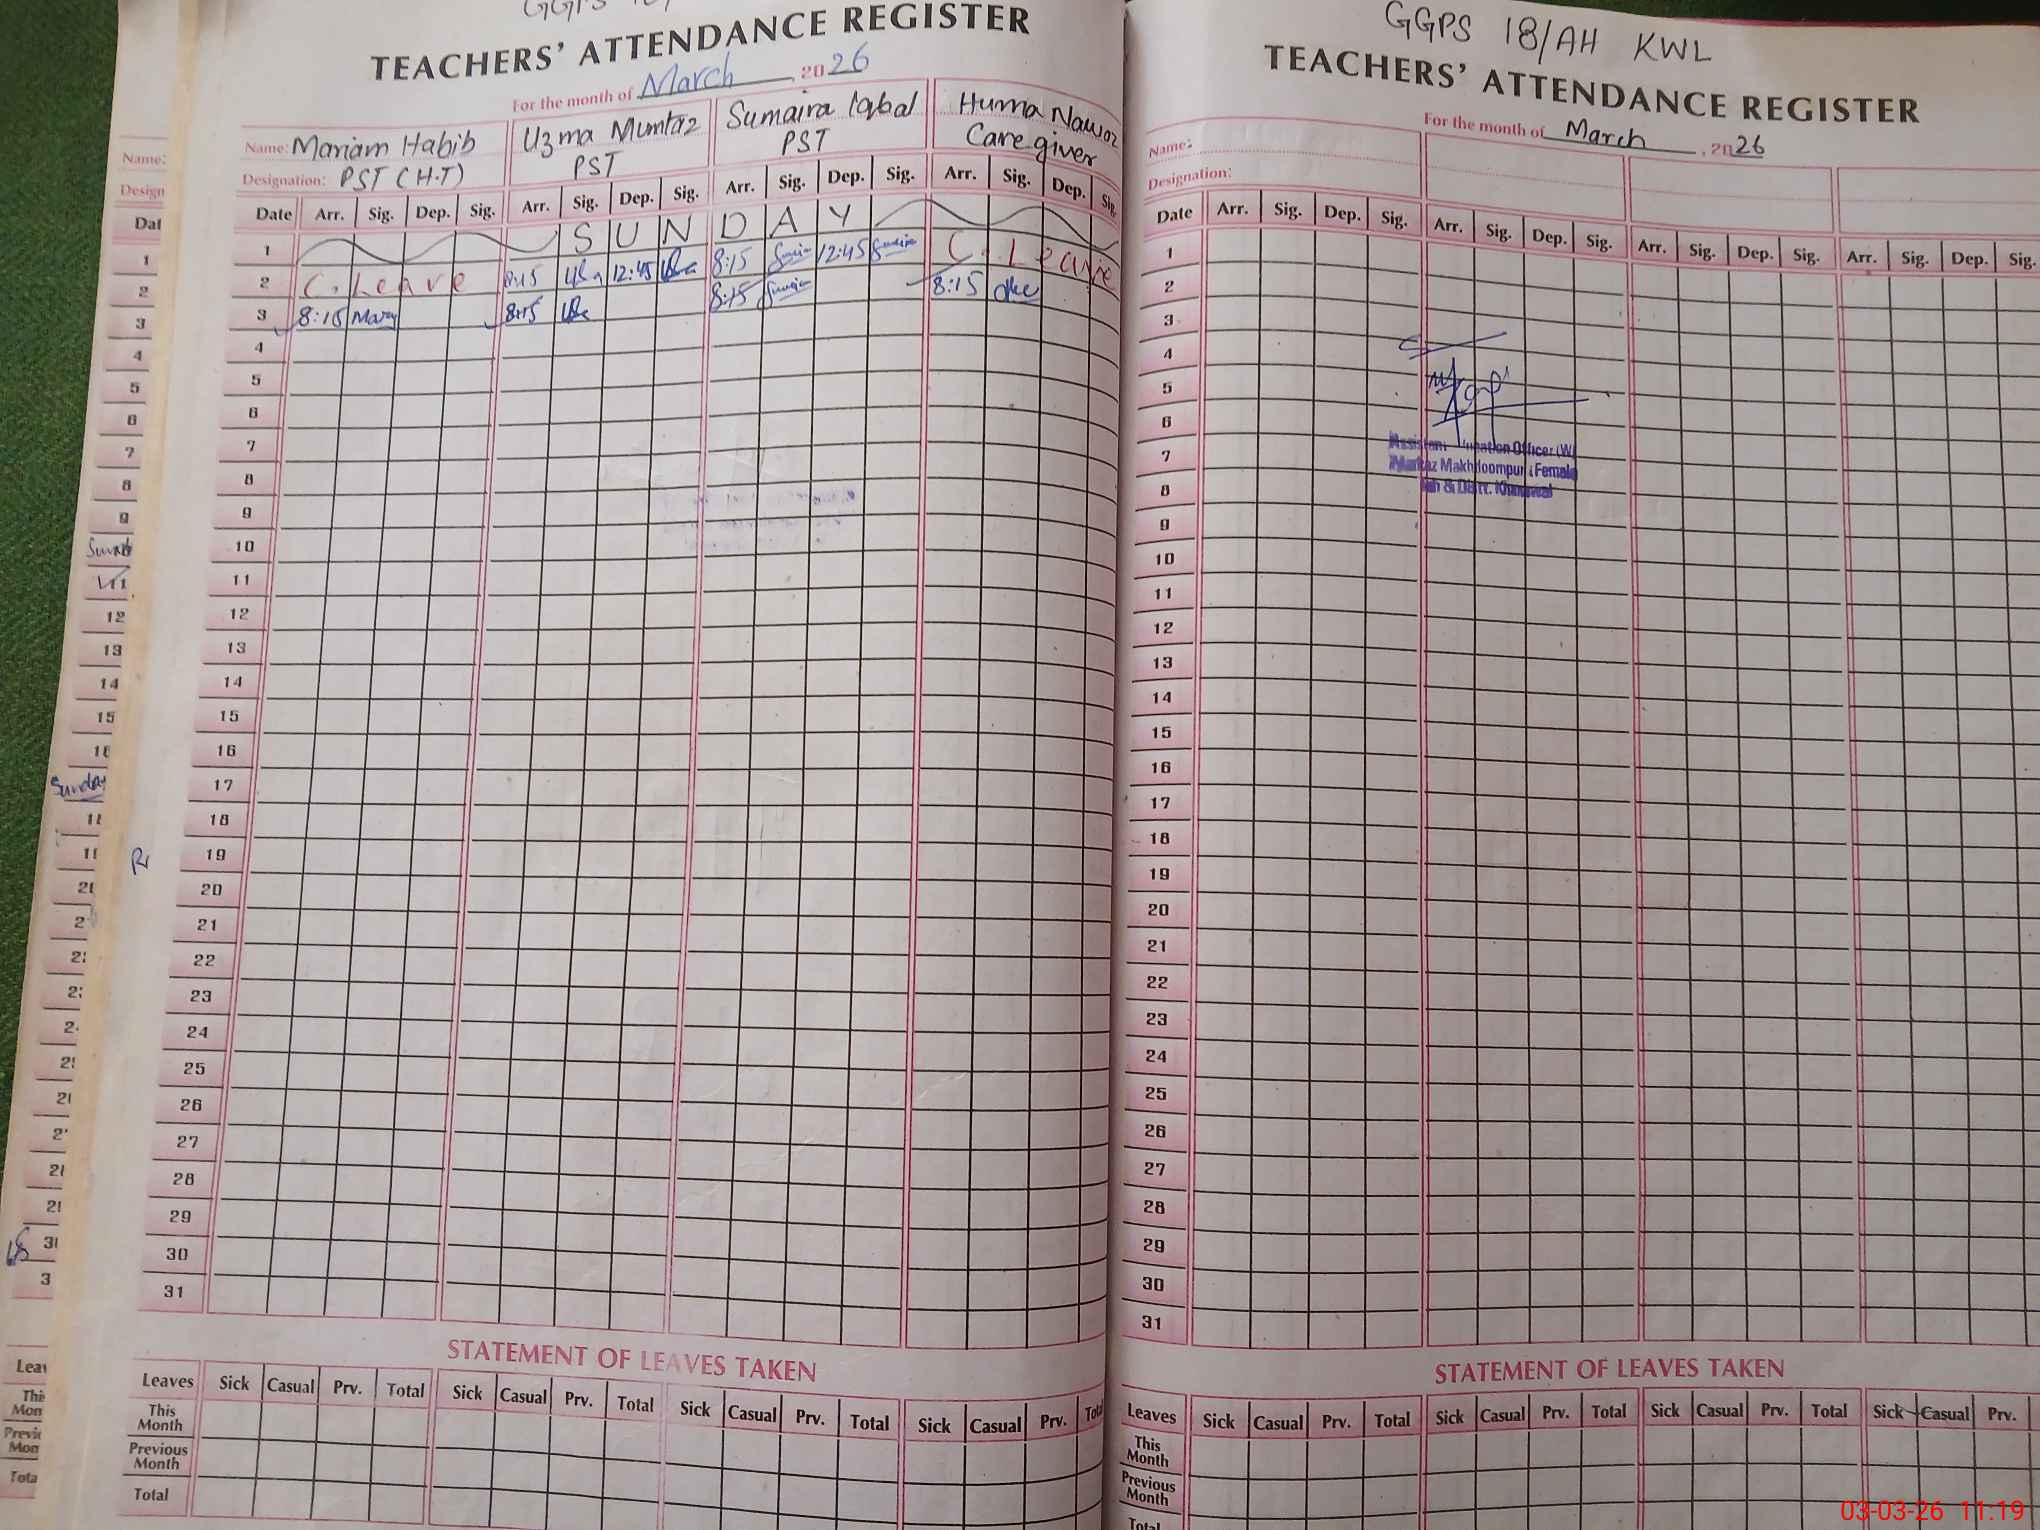 TEACHERS' ATTENDANCE REGISTER
For the month of March, 2026
Name: Mariam Habib Uzma Mumtaz Sumaira Iqbal Huma Nawaz
Designation: PST (H.T) PST PST Care giver
Date Arr. Sig. Dep. Sig. Arr. Sig. Dep. Sig. Arr. Sig. Dep. Sig. Arr. Sig. Dep. Sig.
1 S U N D A Y
2 C. Leave 8:15 12:45 8:15 12:45 C. Leave
3 8:15 8:15 8:15 8:15
4
5
6
7
8
9
10
11
12
13
14
15
16
17
18
19
20
21
22
23
24
25
26
27
28
29
30
31
STATEMENT OF LEAVES TAKEN
Leaves Sick Casual Prv. Total Sick Casual Prv. Total Sick Casual Prv. Total Sick Casual Prv. Total
This Month
Previous Month
Total
GGPS 18/AH KWL
TEACHERS' ATTENDANCE REGISTER
For the month of March, 2026
Name:
Designation:
Date Arr. Sig. Dep. Sig. Arr. Sig. Dep. Sig. Arr. Sig. Dep. Sig. Arr. Sig. Dep. Sig.
1
2
3
4
5
6
7
8
9
10
11
12
13
14
15
16
17
18
19
20
21
22
23
24
25
26
27
28
29
30
31
Officer (W)
Markaz Makhdoompur (Female)
& Distt. Khanewal
STATEMENT OF LEAVES TAKEN
Leaves Sick Casual Prv. Total Sick Casual Prv. Total Sick Casual Prv. Total Sick Casual Prv.
This Month
Previous Month
Total
03-03-26 11:19